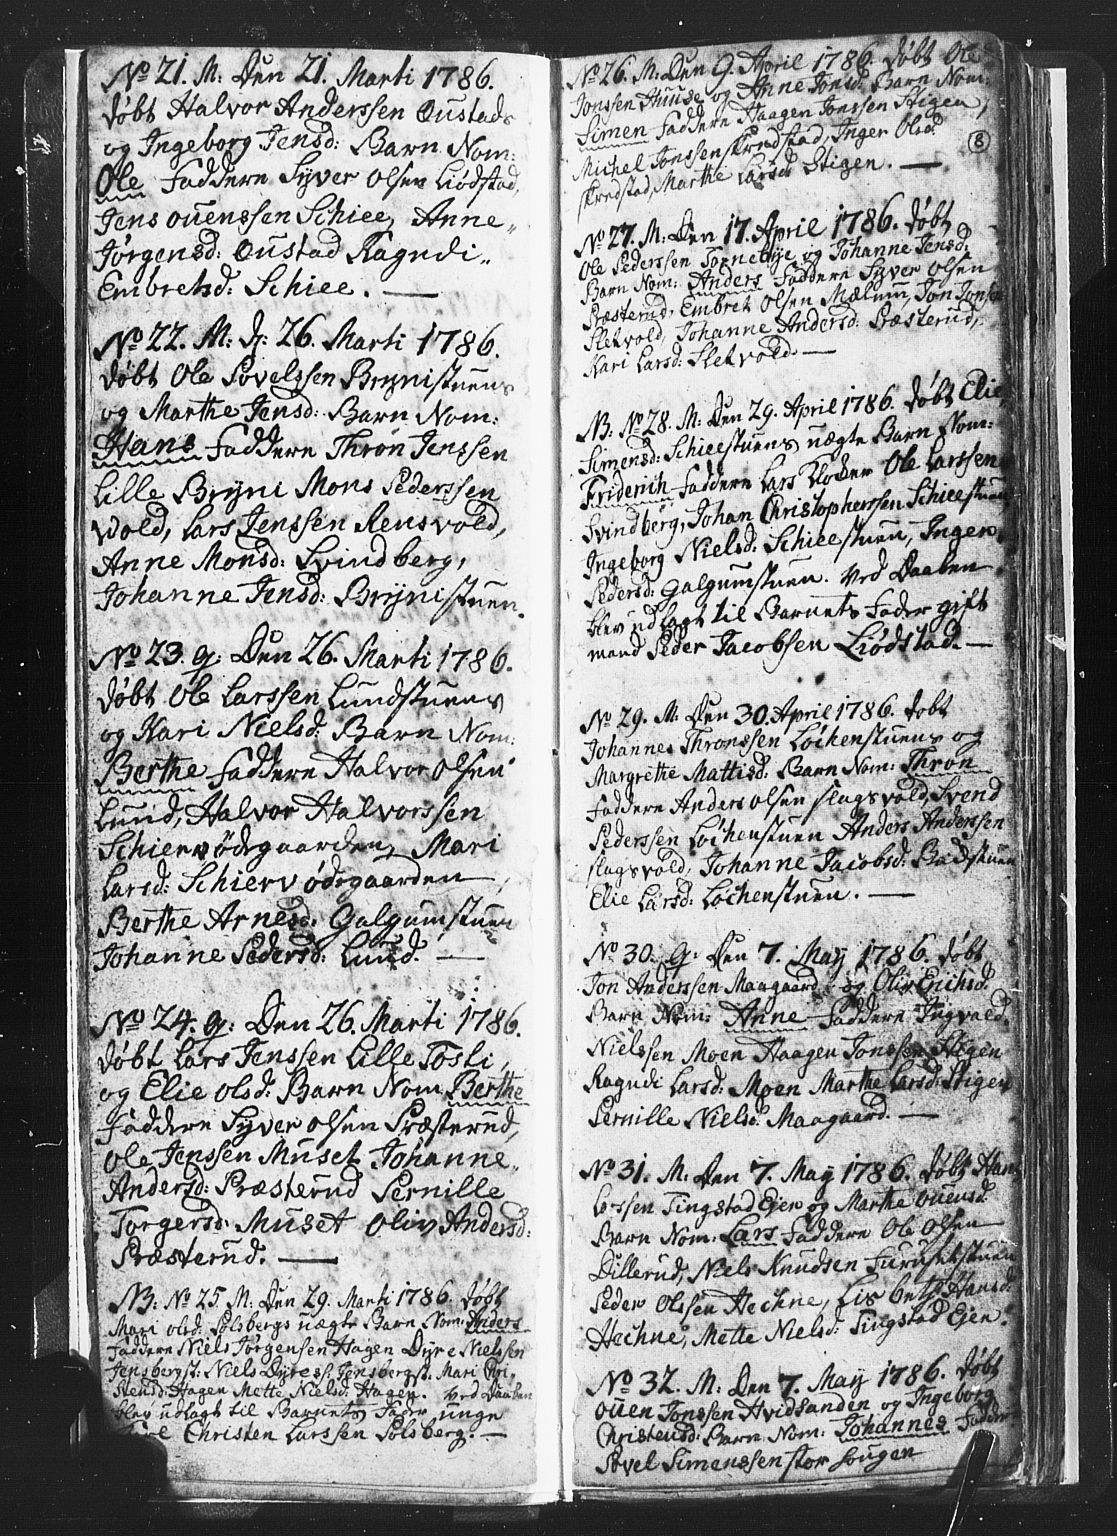 No 21. M: Den 21. Marti 1786.
døbt Halvor Anderssen Oustads
og Ingeborg Jensd: Barn Nom:
Ole Faddere Syver Olsen Liødstad,
Jens Ouenssen Schiee, Anne
Jørgensd: Oustad Ragndi
Embretsd: Schiee.
No 22. M: d: 26. Marti 1786.
døbt Ole Povelssen Brynistuens
og Marthe Jensd: Barn Nom:
Hans Faddere Thron Jenssen
Lille Bryni Mons Pederssen
Vold, Lars Jenssen Rensvold,
Anne Monsd: Svindberg,
Johanne Jensd: Brynistuen.
No 23. q: Den 26. Marti 1786.
døbt Ole Larssen Lundstuens
og Kari Nielsd: Barn Nom:
Berthe Faddere Halvor Olsen
Lund, Halvor Halvorssen
Schiervødegaarden, Mari
Larsd: Schiervødegaarden,
Berthe Arnesd: Galgumstuen
Johanne Pedersd: Lund.
No 24. q: Den 26. Marti 1786.
døbt Lars Jenssen Lille Tosti
og Elie Olsd: Barn Nom Berthe
Faddere Syver Olsen Præsterud,
Ole Jenssen Muset Johanne
Andersd: Præsterud Pernille
Torgersd: Muset Oliv Andersd:
Præsterud.
NB: No 25. M: Den 29. Marti 1786. døbt
Mari Olsd: Solsbergs uægte Barn Nom: Anders
Faddere Niels Jørgensen Hagen Dyre Nielssen
Jensbergst: Niels Dyress: Jensbergst. Mari Chri
stensd: Hagen Mette Nielsd: Hagen. Ved Daaben
blev udlagt til Barnets Fader unge
Christen Larssen Solsberg.
No 26. M: Den 9. April 1786. døbt Ole
Jonssen Huuse og Anne Jonsd: Barn Nom:
Simen Faddere Haagen Jonssen Stigen,
Michel Jonssen Skredstad, Inger Olsd:
Skredstad, Marthe Larsd: Stigen.
8
No 27. M: Den 17. April 1786. døbt
Ole Pederssen Tornebye og Johanne Jensd:
Barn Nom: Anders Faddere Syver Olsen
Præsterud, Embret Olsen Mælum, Jon Jonsen
Sletvold, Johanne Andersd: Præsterud,
Kari Larsd: Sletvold.
NB: No 28. M: Den 29. April 1786. døbt Elie
Simensd: Schieestuens uægte Barn Nom:
Friderich Faddere Lars Klocker Ole Larssen
Svindberg, Johan Christophersen Schieestuen
Ingeborg Nielsd: Schieestuen, Inger
Pedersd: Galgumstuen. Ved Daaben
blev udlagt til Barnets Fader gift
mand Peder Jacobsen Liødstad.
No 29. M: Den 30. April 1786. døbt
Johannes Thronssen Lochenstuens og
Margrethe Mattisd: Barn Nom: Thron
Faddere Anders Olsen Slagsvold, Svend
Pederssen Lochenstuen Anders Anderssen
Slagsvold, Johanne Jacobsd: Badstuen
Elie Larsd: Lochenstuen.
No 30. q: Den 7. May 1786. døbt
Jon Anderssen Maagaard og Oliv Erichsd:
Barn Nom: Anne Faddere Ingvald
Nielssen Moen Haagen Jonssen Stigen
Ragndi Larsd: Moen Marthe Larsd: Stigen
Pernille Nielsd: Maagaard.
No 31. M: Den 7. May 1786. døbt Hans
Larssen Tingstad Ejer og Marthe Ouensd:
Barn Nom: Lars Faddere Ole Olsen
Dillerud, Niels Knudsen Furusetstuen
Peder Olssen Hechne, Lisbeth Hansd:
Hechne, Mette Nielsd: Tingstad Ejer.
No 32. M: Den 7. May 1786. døbt
Ouen Jonssen Hvidsanden og Ingeborg
Christensd: Barn Nom: Johannes Fadder
Povel Simenssen Stor